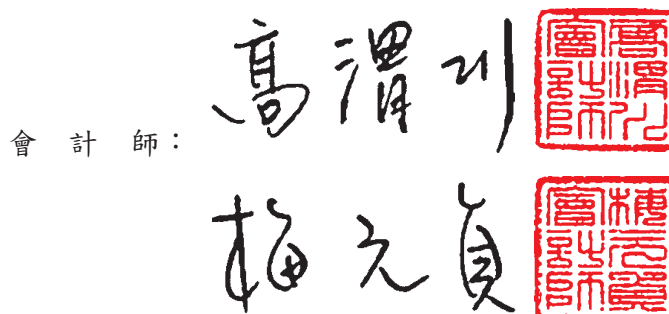 會計師：
高渭川
高渭川
會計師
梅元貞
梅元貞
會計師